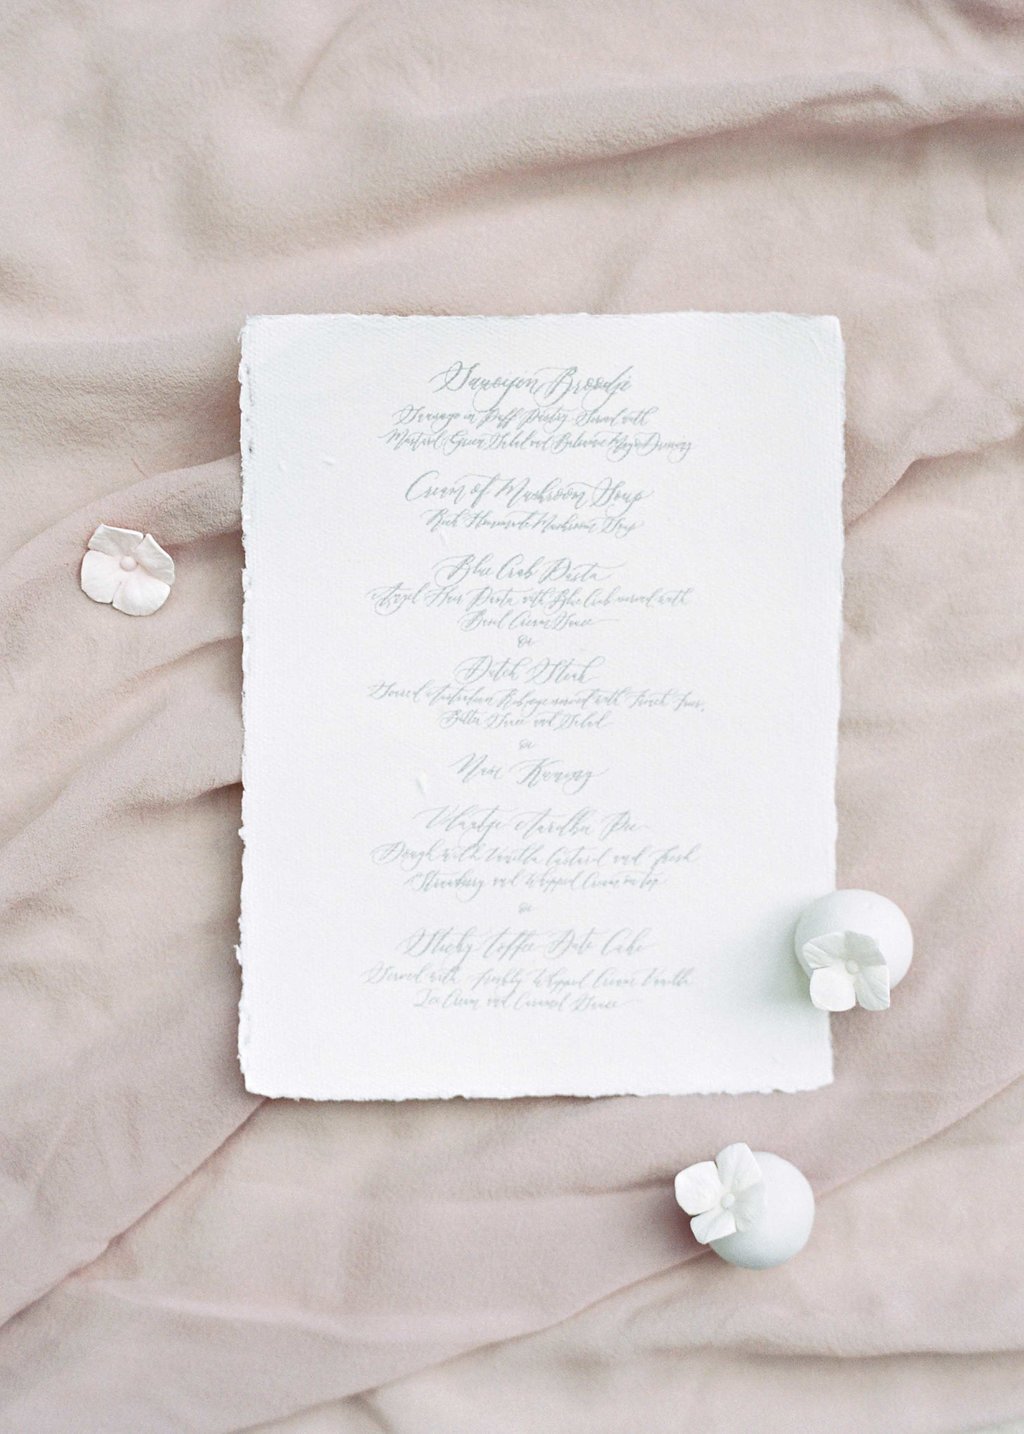 Saucijzen Broodje
Sausage in Puff Pastry Served with
Mustard, Green Salad and Balsamic Dressing
Cream of Mushroom Soup
Rich Homemade Mushroom Soup
Blue Crab Pasta
Angel Hair Pasta with Blue Crab served with
Basil Cream Sauce
or
Dutch Steak
Seared Australian Ribeye served with French Fries,
Butter Sauce and Salad
or
Nasi Kuning
Vlaatje Aardbei Pie
Dough with Vanilla Custard and Fresh
Strawberry and Whipped Cream on top
or
Sticky Toffee Date Cake
Served with Freshly Whipped Cream Vanilla
Ice Cream and Caramel Sauce